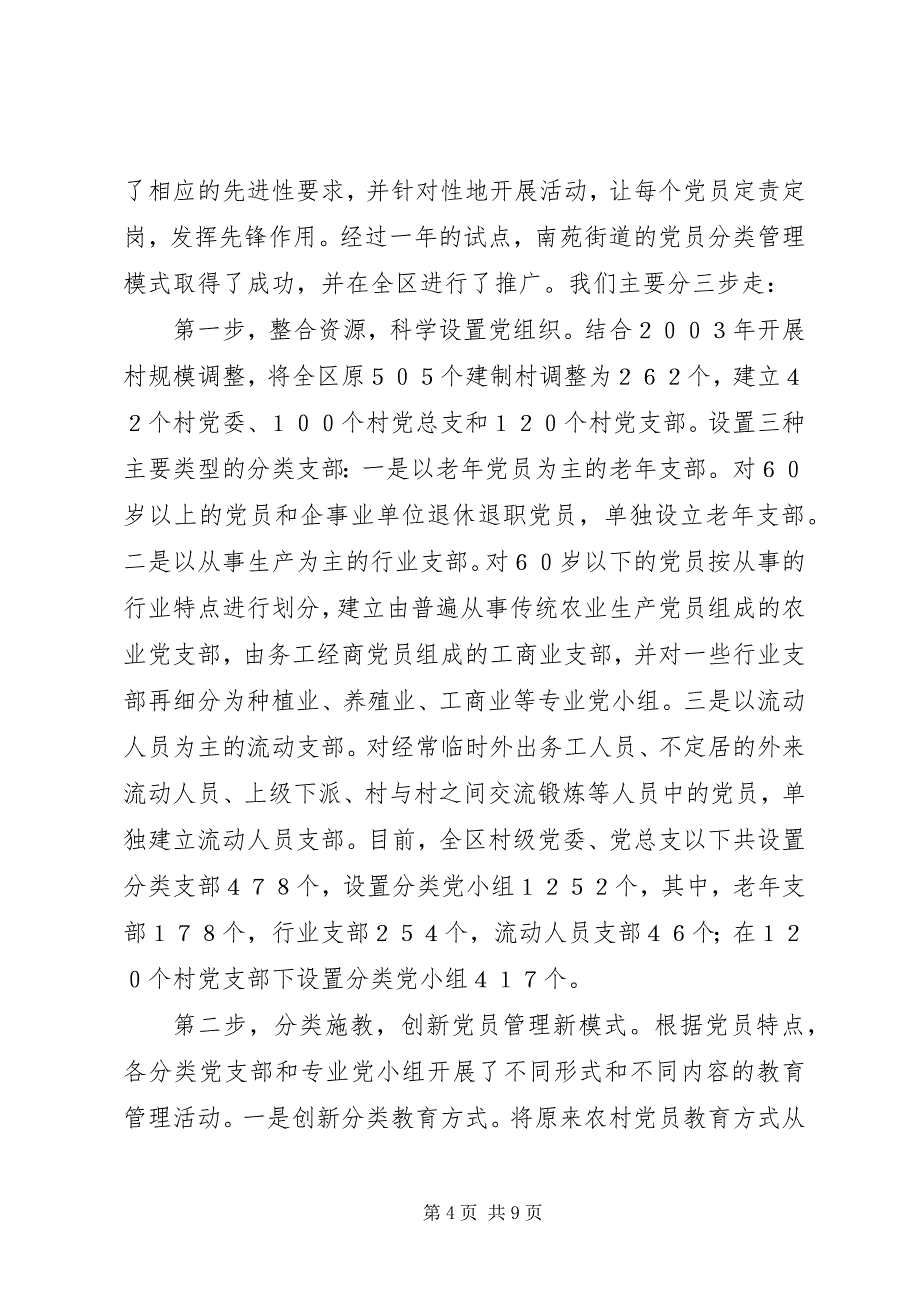 了相应的先进性要求，并针对性地开展活动，让每个党员定责定
岗，发挥先锋作用。经过一年的试点，南苑街道的党员分类管理
模式取得了成功，并在全区进行了推广。我们主要分三步走：
第一步，整合资源，科学设置党组织。结合２００３年开展
村规模调整，将全区原５０５个建制村调整为２６２个，建立４
２个村党委、１００个村党总支和１２０个村党支部。设置三种
主要类型的分类支部：一是以老年党员为主的老年支部。对６０
岁以上的党员和企事业单位退休退职党员，单独设立老年支部。
二是以从事生产为主的行业支部。对６０岁以下的党员按从事的
行业特点进行划分，建立由普遍从事传统农业生产党员组成的农
业党支部，由务工经商党员组成的工商业支部，并对一些行业支
部再细分为种植业、养殖业、工商业等专业党小组。三是以流动
人员为主的流动支部。对经常临时外出务工人员、不定居的外来
流动人员、上级下派、村与村之间交流锻炼等人员中的党员，单
独建立流动人员支部。目前，全区村级党委、党总支以下共设置
分类支部４７８个，设置分类党小组１２５２个，其中，老年支
部１７８个，行业支部２５４个，流动人员支部４６个；在１２
０个村党支部下设置分类党小组４１７个。
第二步，分类施教，创新党员管理新模式。根据党员特点，
各分类党支部和专业党小组开展了不同形式和不同内容的教育
管理活动。一是创新分类教育方式。将原来农村党员教育方式从
第 4 页 共 9 页